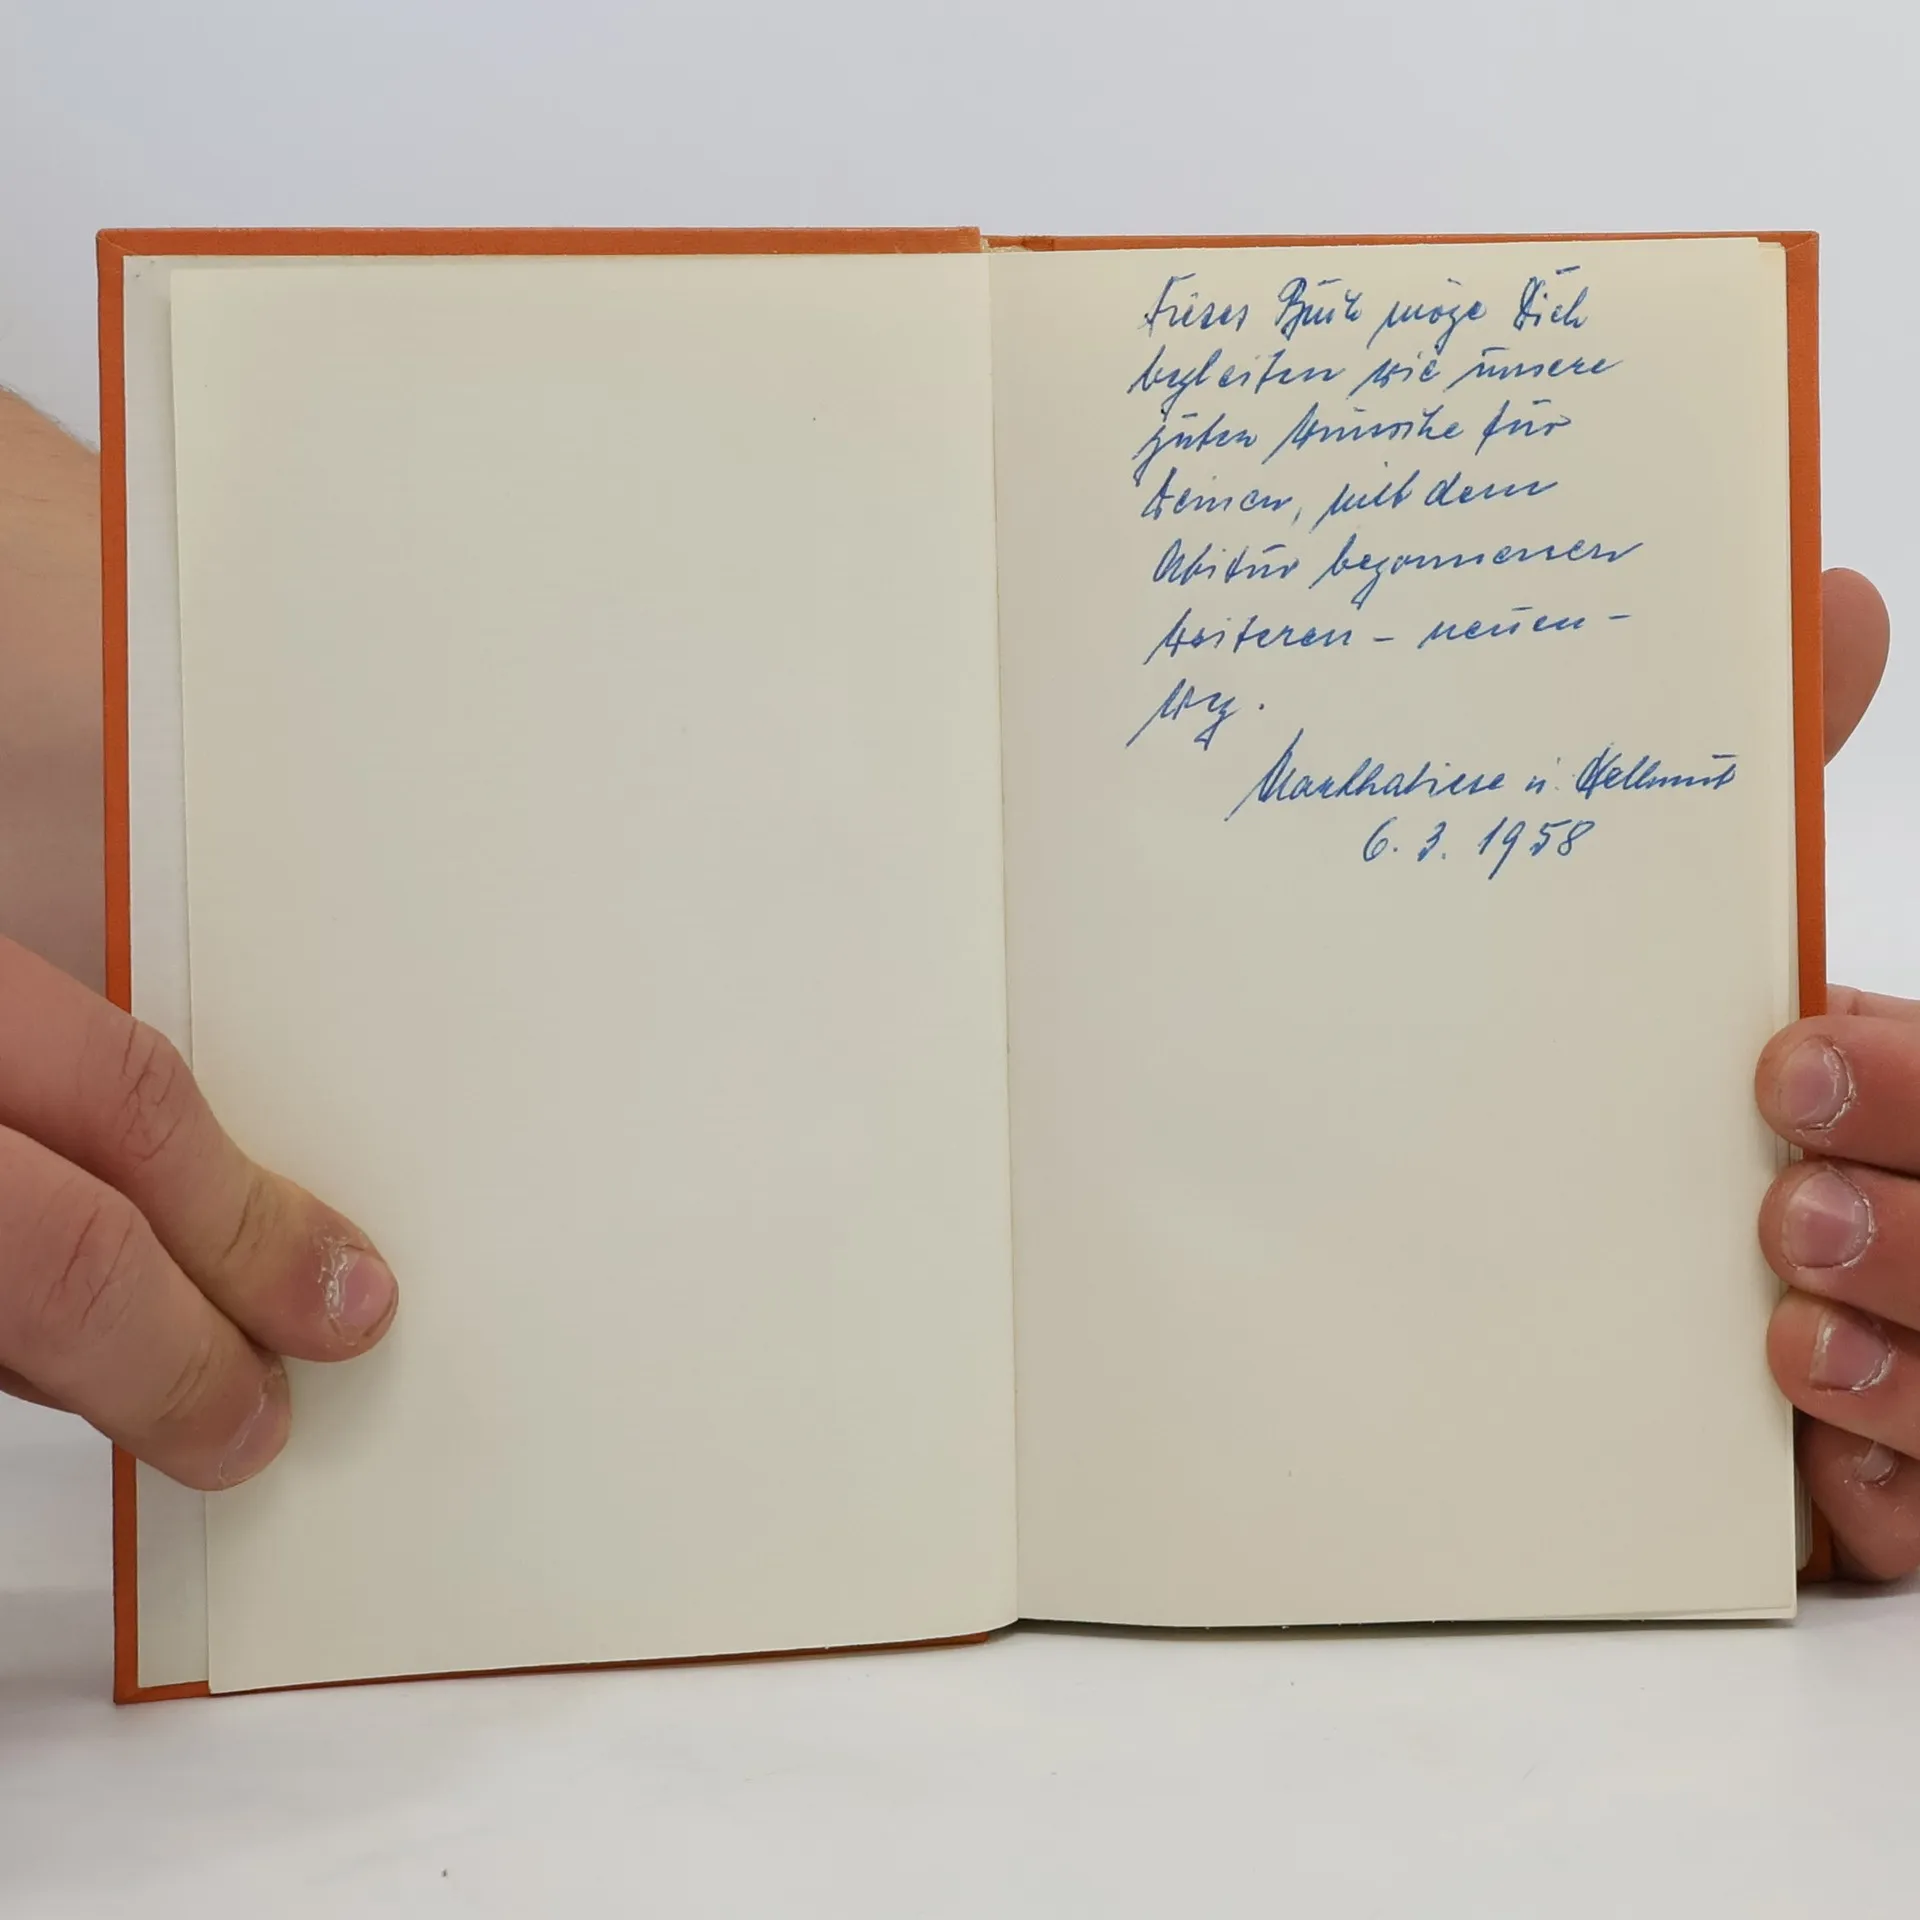 Dieses Buch möge Dich
begleiten wie unsere
guten Wünsche für
Deinen, mit dem
Abitur begonnenen
weiteren – neuen –
Weg.
u. Hellmut
6. 3. 1958